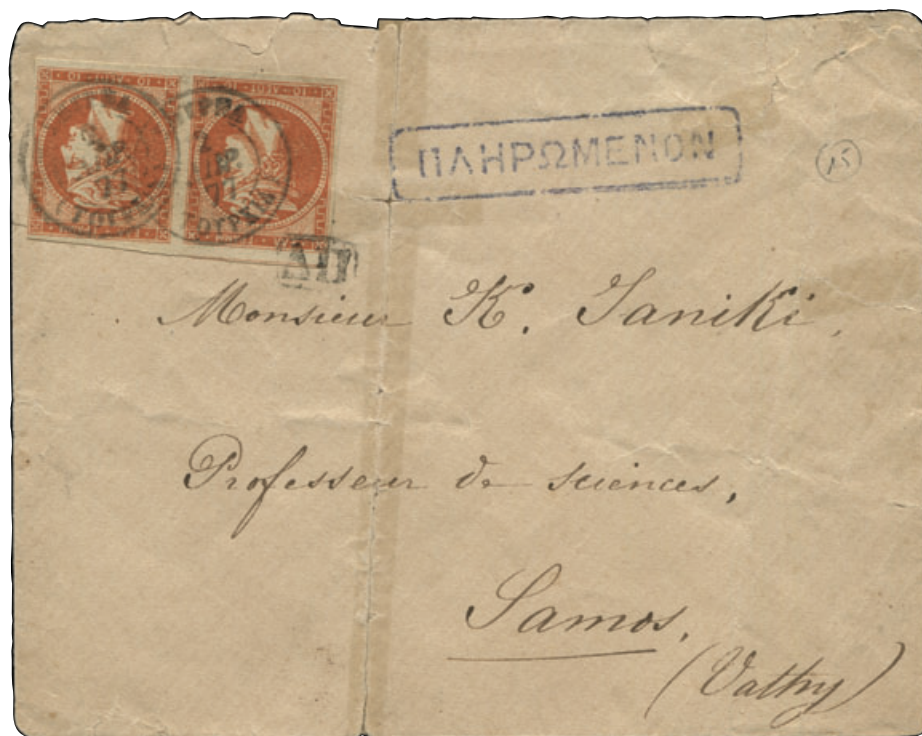 ΠΛΗΡΩΜΕΝΟΝ
15
77
77
ΔΠ
Monsieur K. Saniki,
Professeur de sciences,
Samos,
(Vathy)